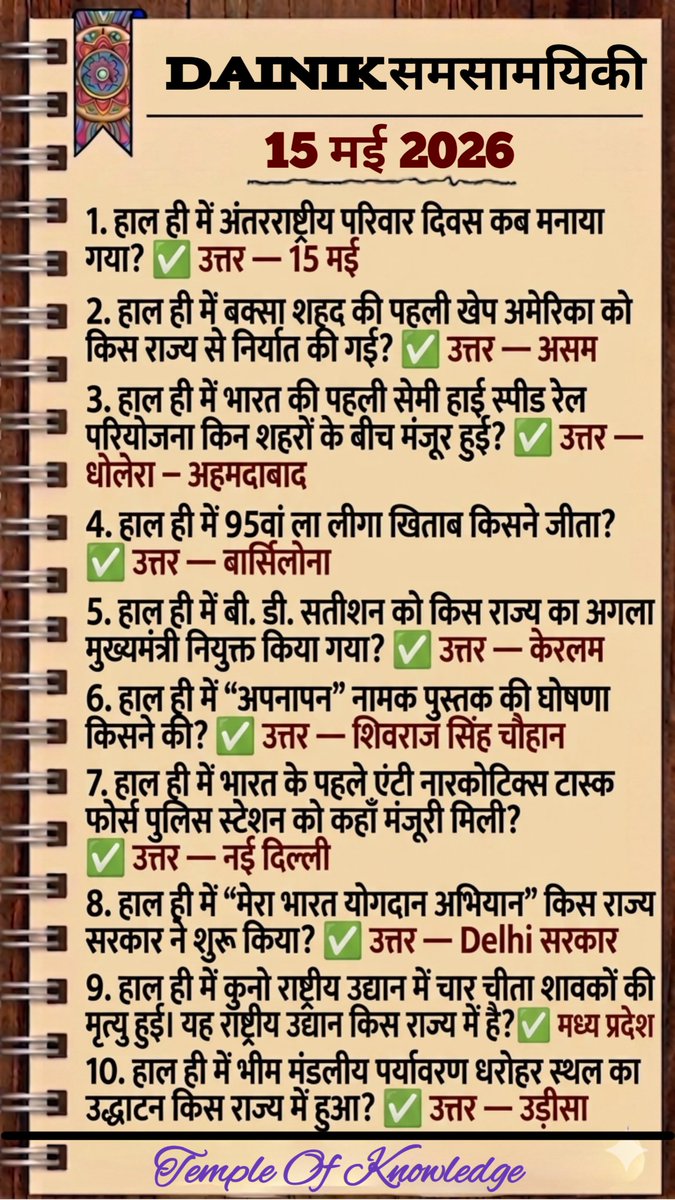 DAINIK समसामयिकी
15 मई 2026
1. हाल ही में अंतरराष्ट्रीय परिवार दिवस कब मनाया
गया? ✅ उत्तर — 15 मई
2. हाल ही में बक्सा शहद की पहली खेप अमेरिका को
किस राज्य से निर्यात की गई? ✅ उत्तर — असम
3. हाल ही में भारत की पहली सेमी हाई स्पीड रेल
परियोजना किन शहरों के बीच मंजूर हुई? ✅ उत्तर —
धोलेरा – अहमदाबाद
4. हाल ही में 95वां ला लीगा खिताब किसने जीता?
✅ उत्तर — बार्सिलोना
5. हाल ही में बी. डी. सतीशन को किस राज्य का अगला
मुख्यमंत्री नियुक्त किया गया? ✅ उत्तर — केरलम
6. हाल ही में “अपनापन” नामक पुस्तक की घोषणा
किसने की? ✅ उत्तर — शिवराज सिंह चौहान
7. हाल ही में भारत के पहले एंटी नारकोटिक्स टास्क
फोर्स पुलिस स्टेशन को कहाँ मंजूरी मिली?
✅ उत्तर — नई दिल्ली
8. हाल ही में “मेरा भारत योगदान अभियान” किस राज्य
सरकार ने शुरू किया? ✅ उत्तर — Delhi सरकार
9. हाल ही में कुनो राष्ट्रीय उद्यान में चार चीता शावकों की
मृत्यु हुई। यह राष्ट्रीय उद्यान किस राज्य में है? ✅ मध्य प्रदेश
10. हाल ही में भीम मंडलीय पर्यावरण धरोहर स्थल का
उद्धाटन किस राज्य में हुआ? ✅ उत्तर — उड़ीसा
Temple Of Knowledge